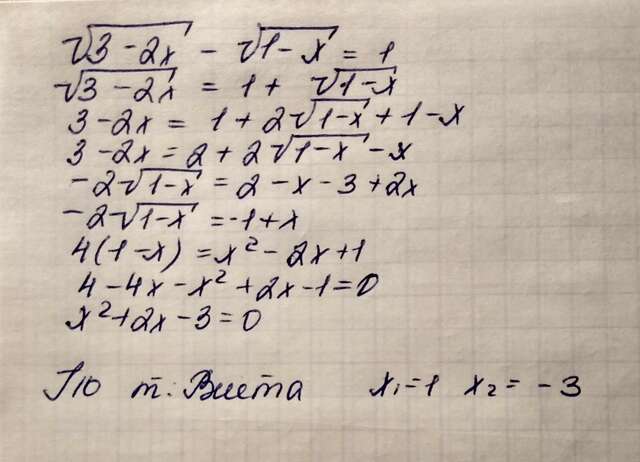 √3-2x - √1-x = 1
√3-2x = 1 + √1-x
3-2x = 1 + 2√1-x + 1-x
3-2x = 2 + 2√1-x - x
-2√1-x = 2-x-3+2x
-2√1-x = -1+x
4(1-x) = x²-2x+1
4-4x-x²+2x-1=0
x²+2x-3=0
По т. Виета x₁=1 x₂=-3